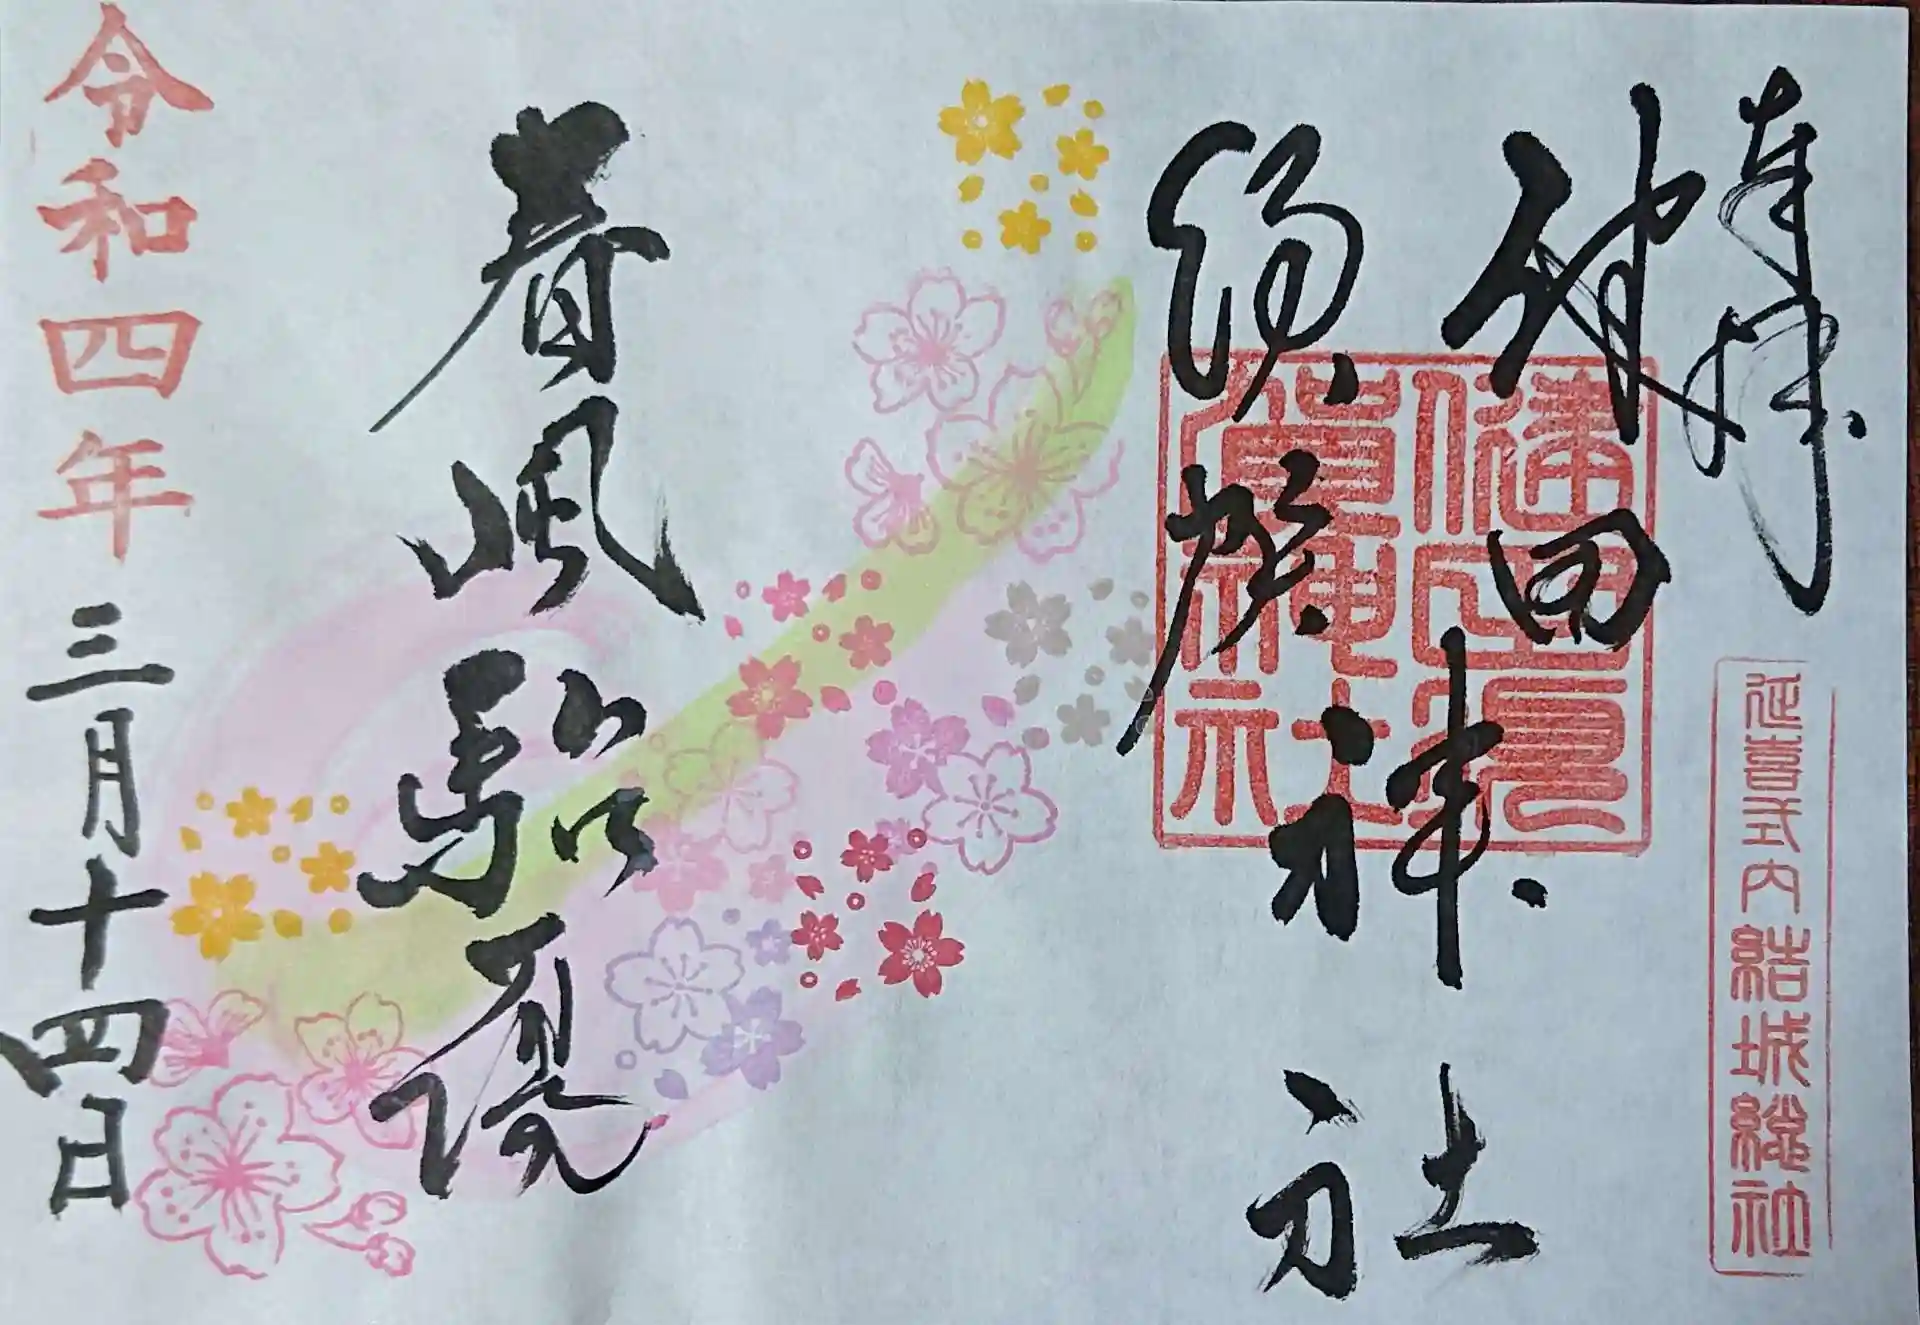 奉拝
延喜式内 結城総社
健田
須賀
神社
健田須
賀神社
春風駘蕩
令和四年三月十四日